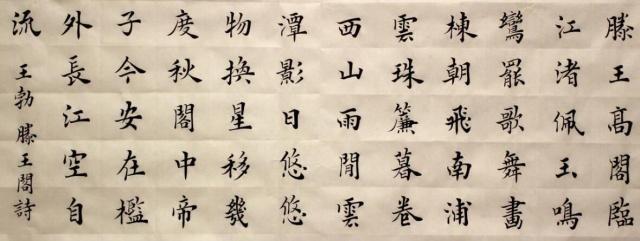 滕王高閣臨
江渚佩玉鳴
鸞罷歌舞畫
棟朝飛南浦
雲珠簾暮卷
西山雨閒雲
潭影日悠悠
物換星移幾
度秋閣中帝
子今安在檻
外長江空自
流
王勃滕王閣詩